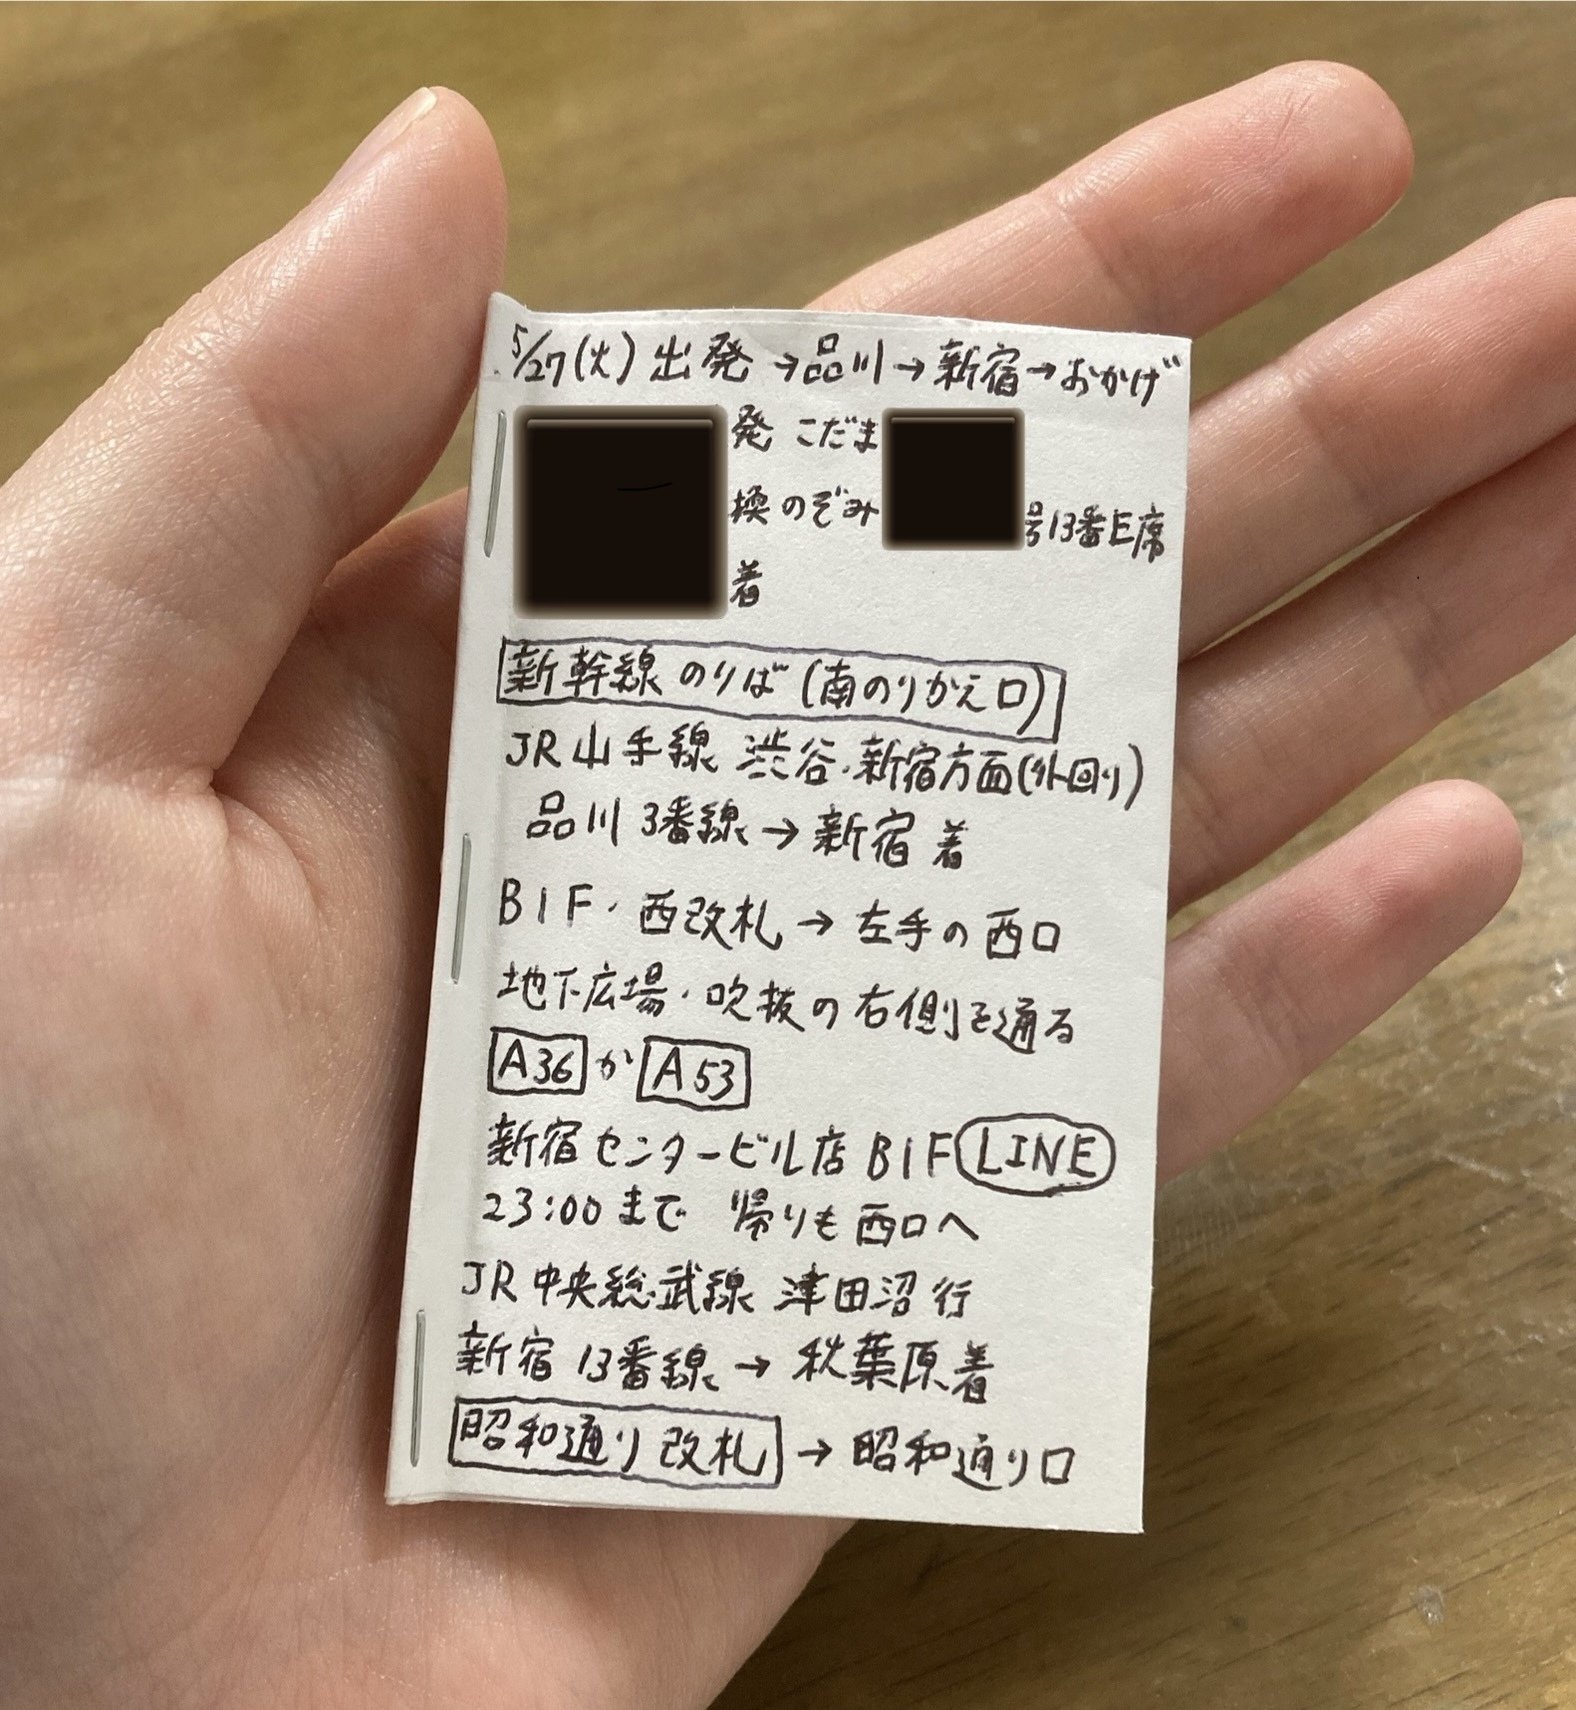 5/27(火)出発→品川→新宿→おかげ
発 こだま
換 のぞみ 号13番E席
着
新幹線のりば(南のりかえ口)
JR山手線 渋谷・新宿方面(外回り)
品川3番線→新宿着
B1F・西改札→左手の西口
地下広場・吹抜の右側を通る
A36 か A53
新宿センタービル店B1F LINE
23:00まで 帰りも西口へ
JR中央総武線 津田沼行
新宿13番線→秋葉原着
昭和通り改札→昭和通り口